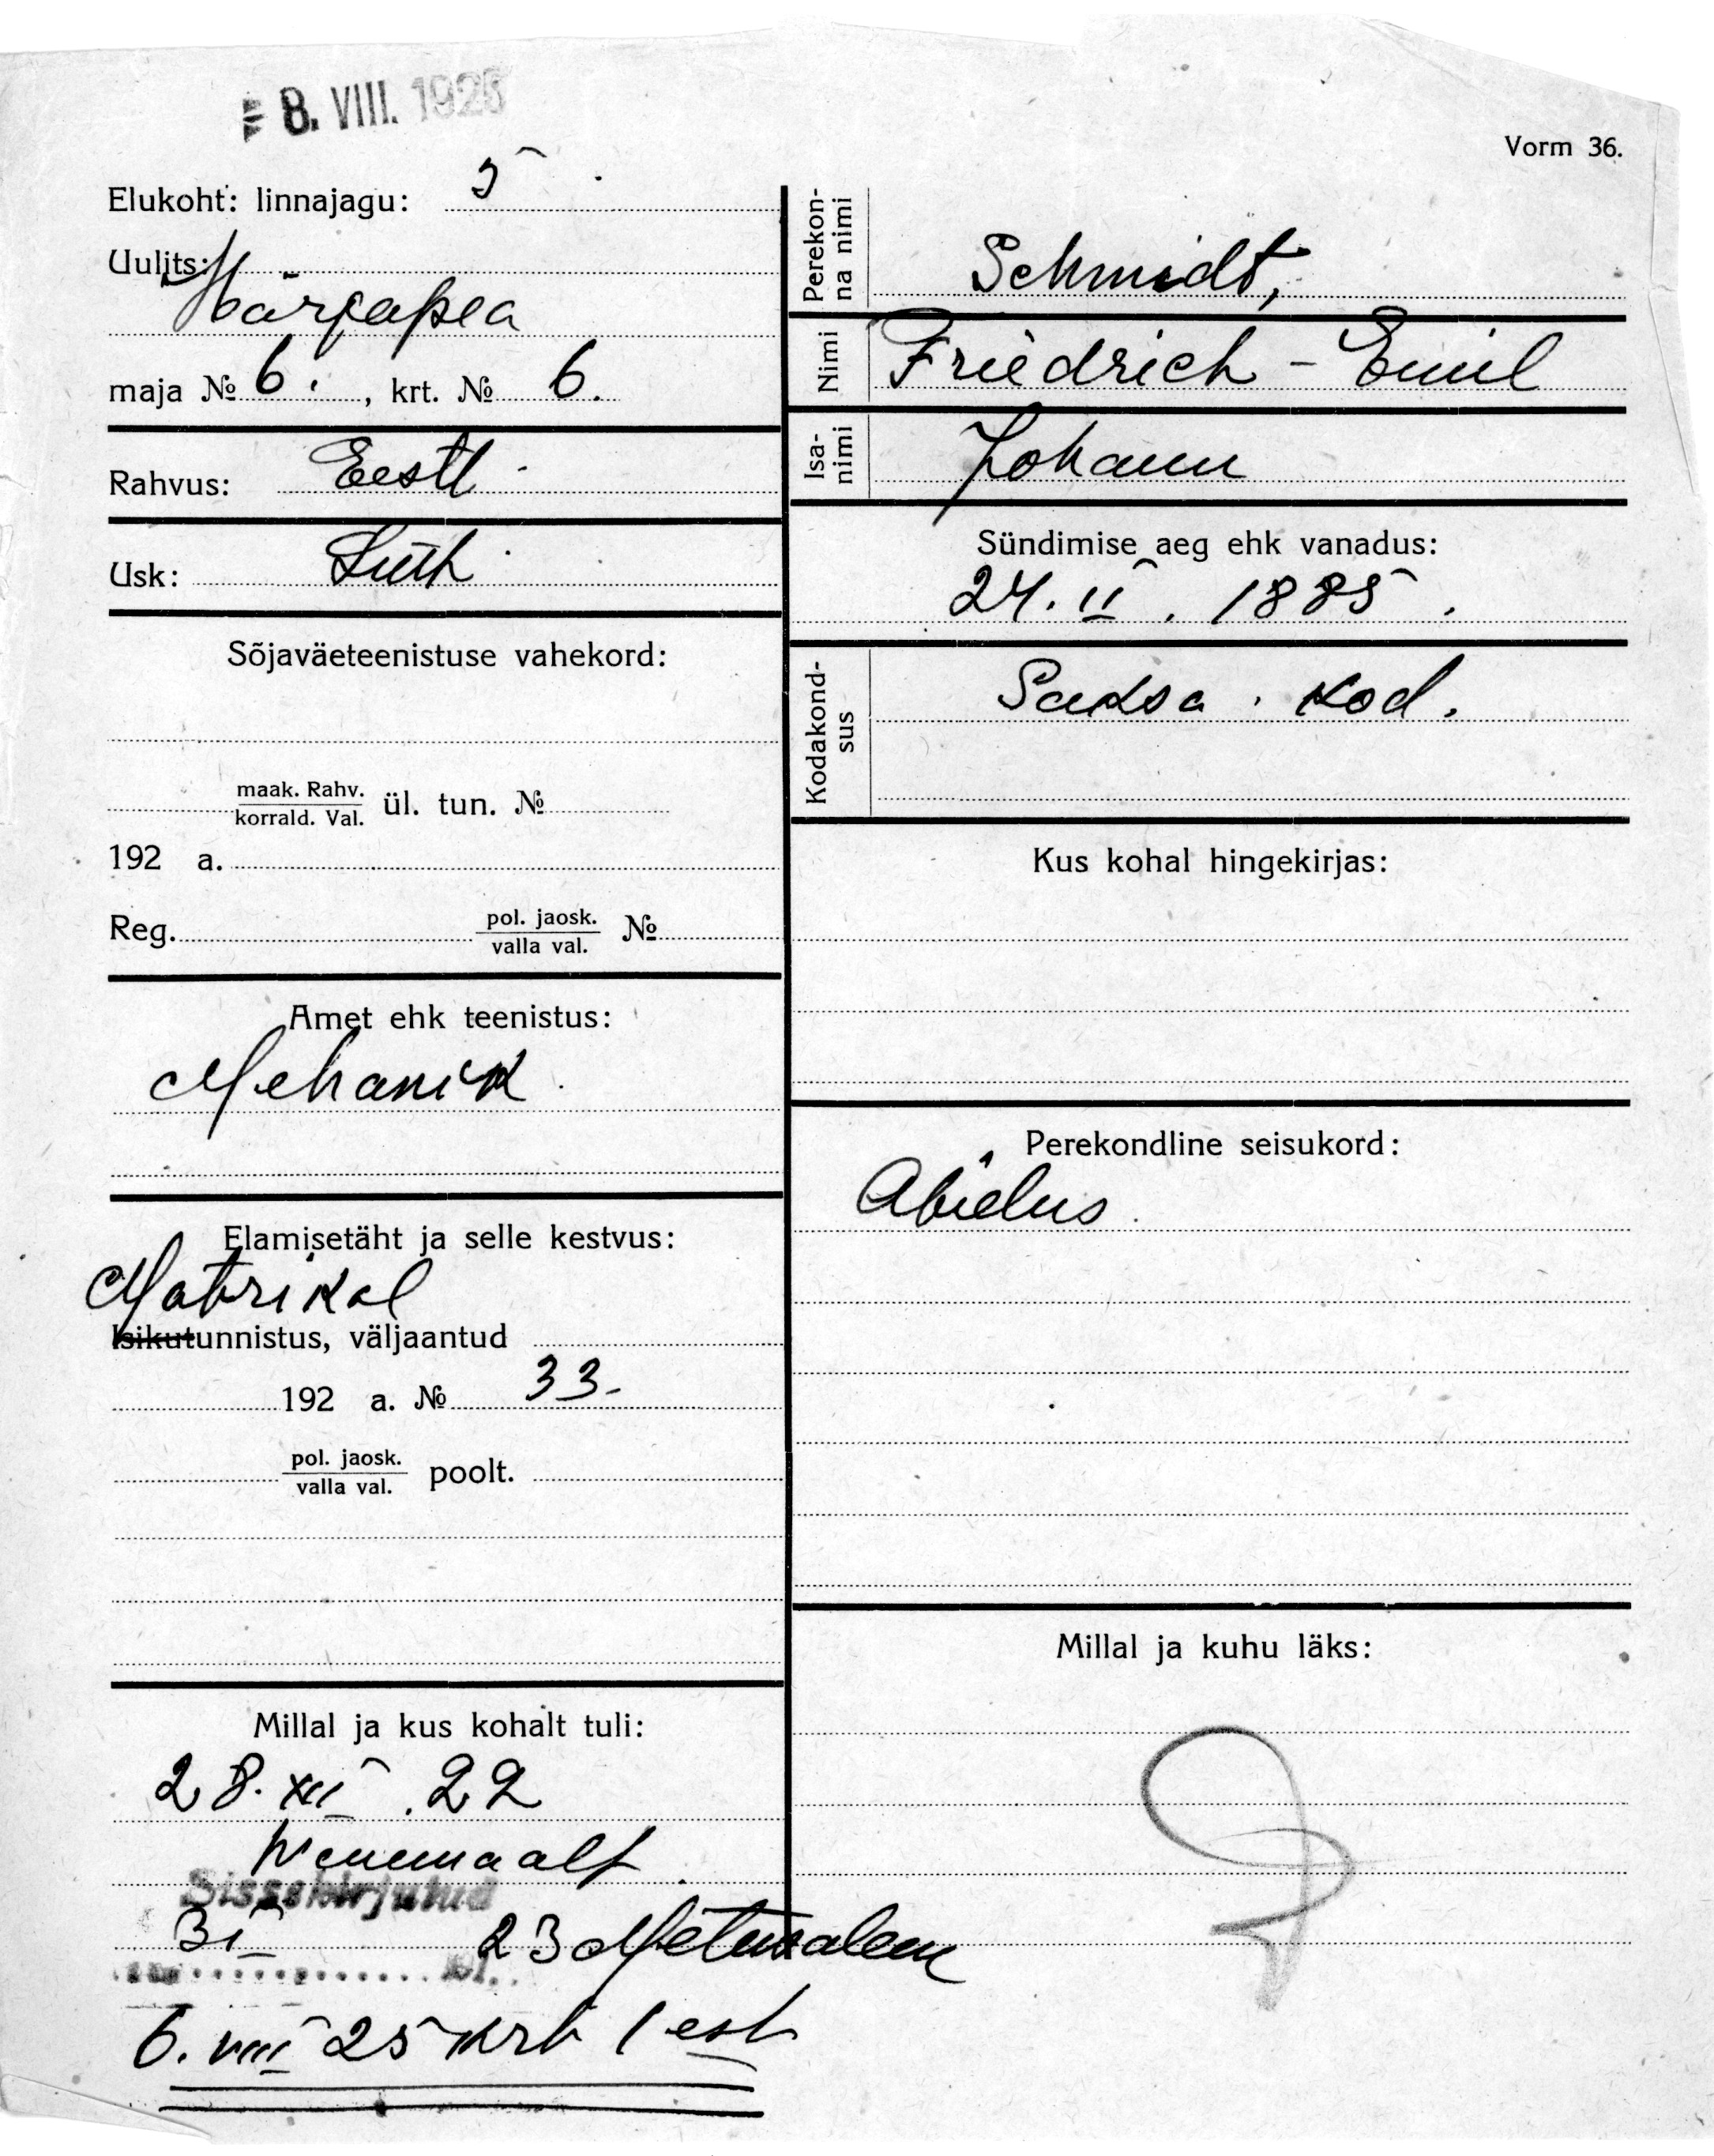 8. VIII. 1925
Vorm 36.
Elukoht: linnajagu: 5
Uulits:
Härjapea
maja № 6. , krt. № 6.
Rahvus: Eesti
Usk: Luth
Sõjaväeteenistuse vahekord:
maak. Rahv.
korrald. Val. ül. tun. №
192 a.
Reg. pol. jaosk.
valla val. №
Amet ehk teenistus:
Mehanik
Elamisetäht ja selle kestvus:
Matrikal
Isikutunnistus, väljaantud
192 a. № 33.
pol. jaosk.
valla val. poolt.
Millal ja kus kohalt tuli:
28. XII. 22
Wenemaalt
Sissekirjutud
3 I 23 Metusalem
6. VIII 25 krt 1 est
Perekonna nimi
Schmidt,
Nimi
Friedrich - Emil
Isanimi
Johann
Sündimise aeg ehk vanadus:
24. II. 1885.
Kodakondsus
Saksa. kod.
Kus kohal hingekirjas:
Perekondline seisukord:
Abielus
Millal ja kuhu läks: